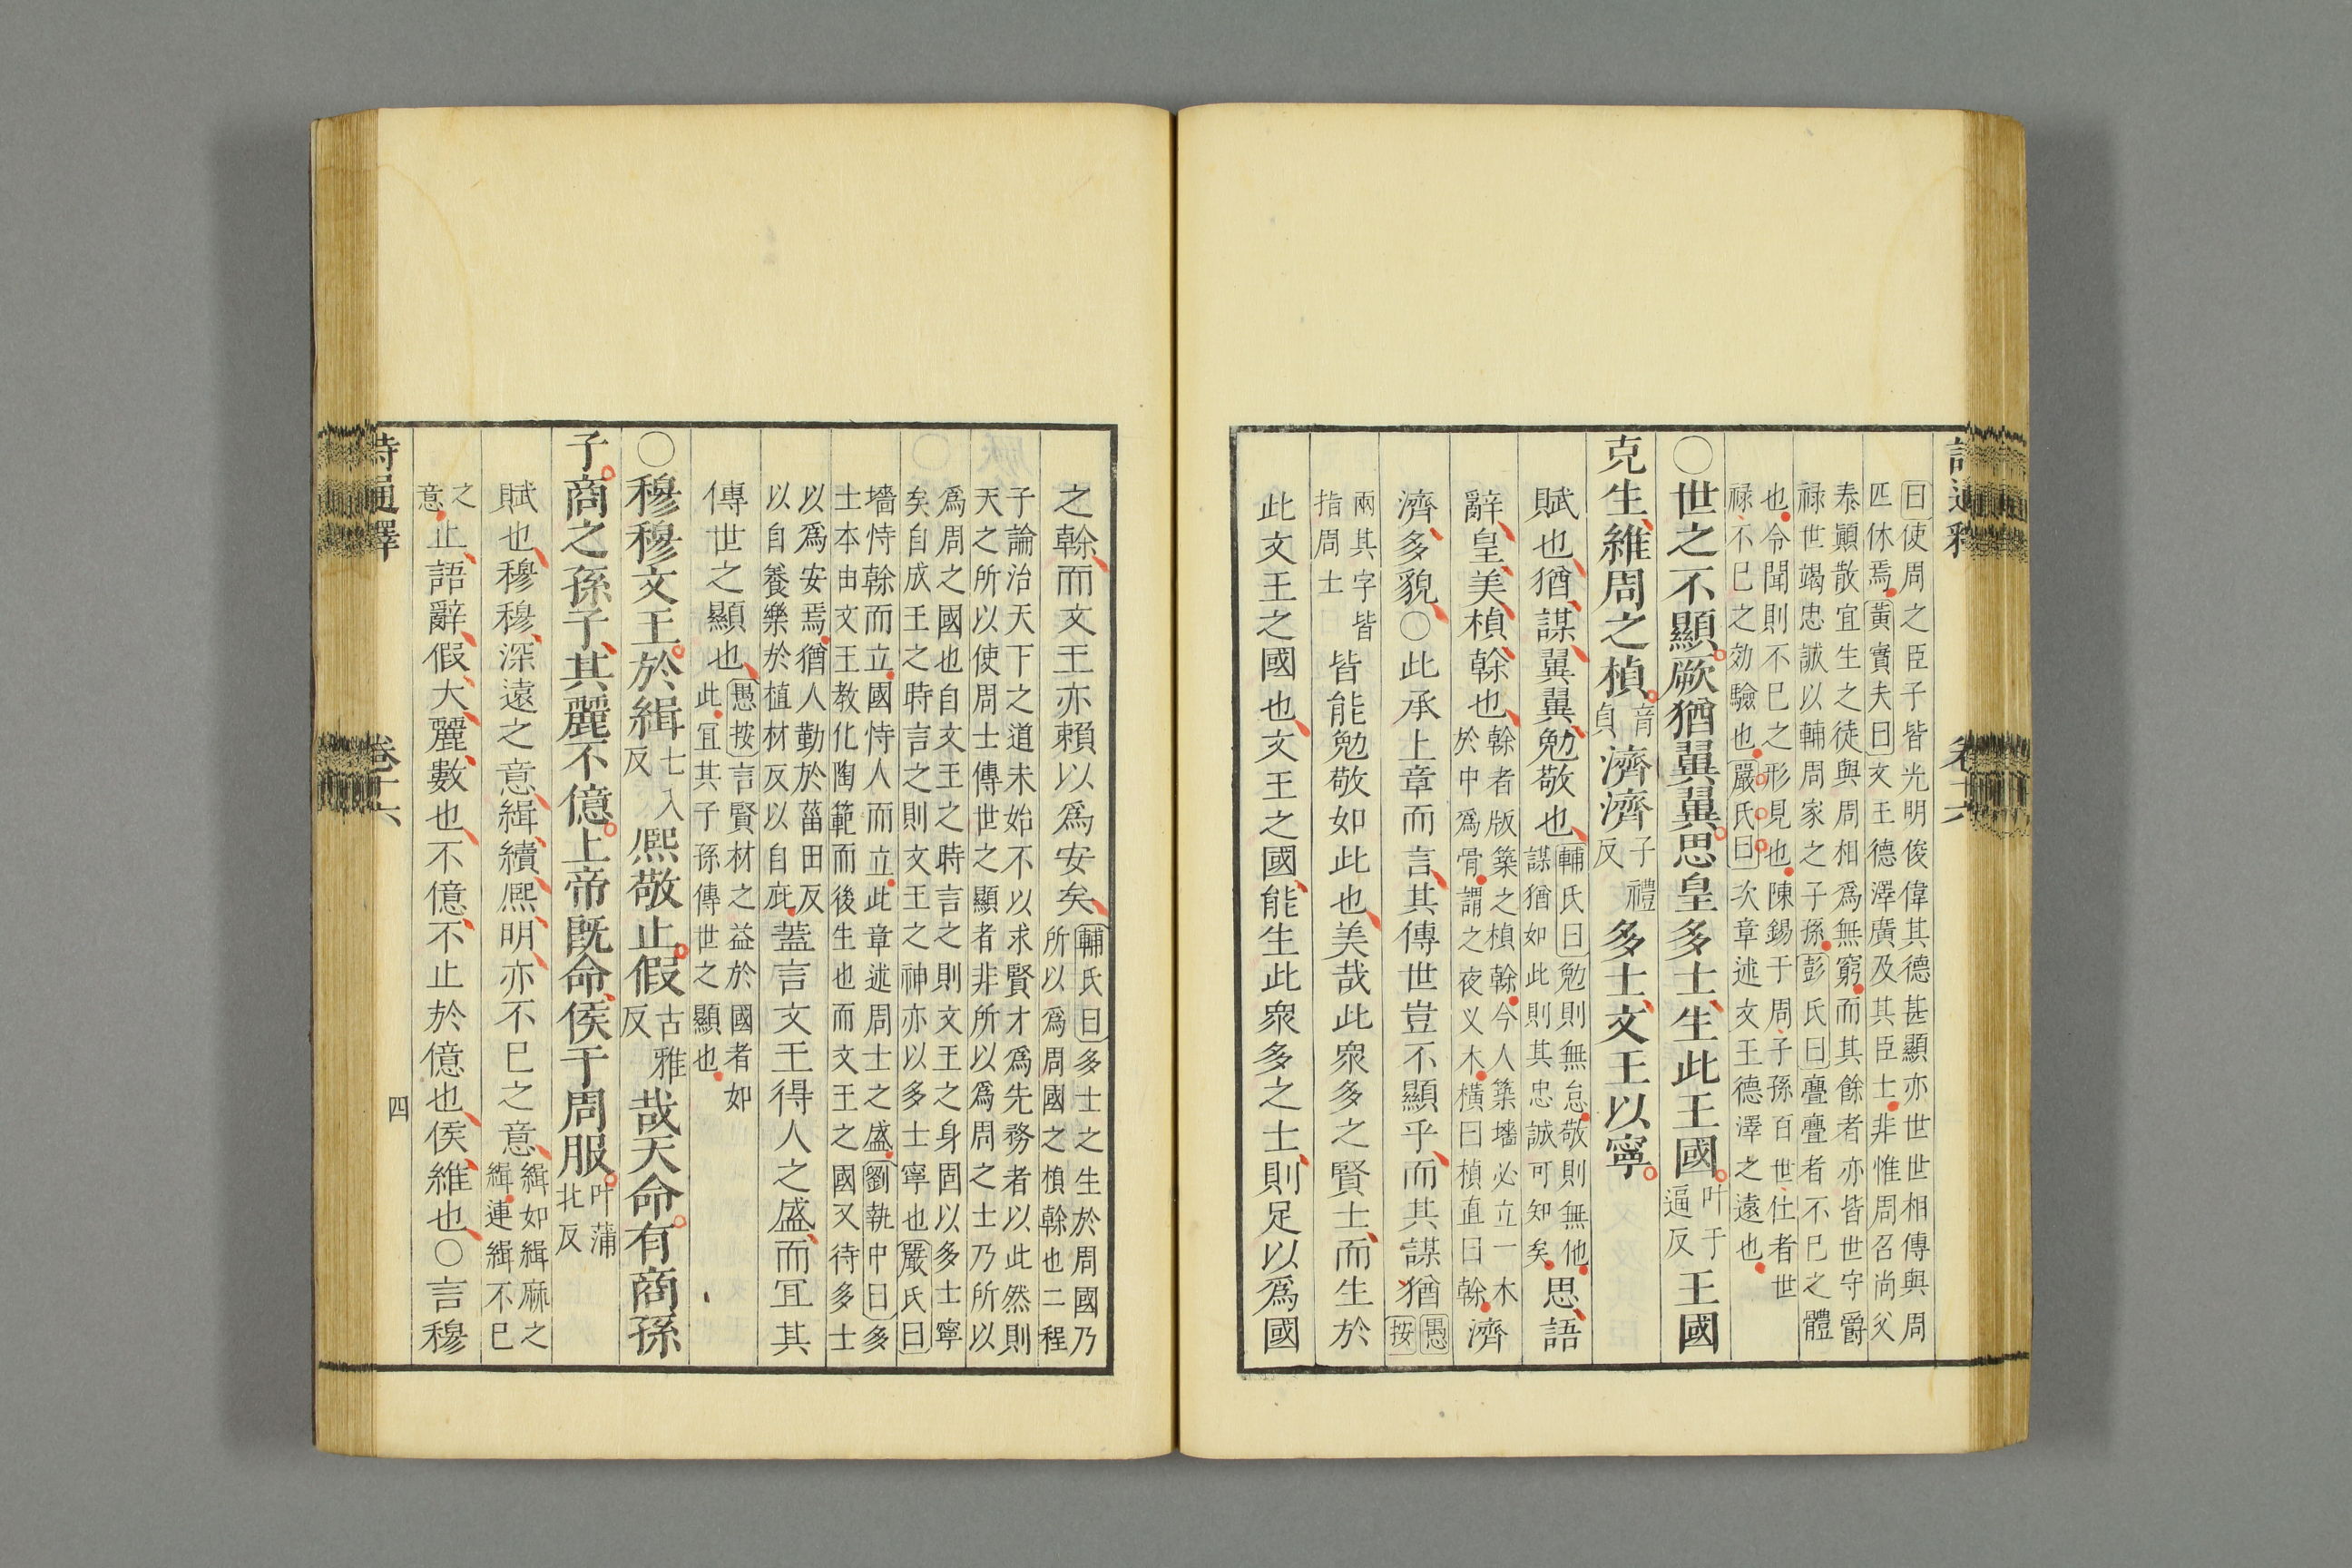 曰使周之臣子皆光明俊偉其德甚顯亦世世相傳與周
匹休焉黃實夫曰文王德澤廣及其臣士非惟周召尚父
泰顚散宜生之徒與周相爲無窮而其餘者亦皆世守爵
禄世竭忠誠以輔周家之子孫彭氏曰亹亹者不巳之體
也令聞則不巳之形見也陳錫于周子孫百世仕者世
禄不巳之効驗也嚴氏曰次章述文王德澤之遠也
〇世之不顯厥猶翼翼思皇多士生此王國叶于逼反王國
克生維周之楨音貞濟濟子禮反多士文王以寧
賦也猶謀翼翼勉敬也輔氏曰勉則無怠敬則無他謀猶如此則其忠誠可知矣思語
辭皇美楨榦也榦者版築之楨榦今人築墻必立一木於中爲骨謂之夜义木橫曰楨直曰榦濟
濟多貌〇此承上章而言其傳世豈不顯乎而其謀猶愚按
兩其字皆指周士皆能勉敬如此也美哉此衆多之賢士而生於
此文王之國也文王之國能生此衆多之士則足以爲國
之榦而文王亦賴以爲安矣輔氏曰多士之生於周國乃所以爲周國之楨榦也二程
子論治天下之道未始不以求賢才爲先務者以此然則
天之所以使周士傳世之顯者非所以爲周之士乃所以
爲周之國也自文王之時言之則文王之身固以多士寧
矣自成王之時言之則文王之神亦以多士寧也嚴氏曰
墻恃榦而立國恃人而立此章述周士之盛劉執中曰多
士本由文王教化陶範而後生也而文王之國又待多士
以爲安焉猶人勤於菑田反
以自養樂於植材反以自庇蓋言文王得人之盛而宜其
傳世之顯也愚按言賢材之益於國者如此宜其子孫傳世之顯也
〇穆穆文王於緝七入反熙敬止假古雅反哉天命有商孫
子商之孫子其麗不億上帝既命侯于周服叶蒲北反
賦也穆穆深遠之意緝續熙明亦不巳之意緝如緝麻之緝連緝不巳
之意止語辭假大麗數也不億不止於億也侯維也〇言穆
詩通釋
卷十六
四